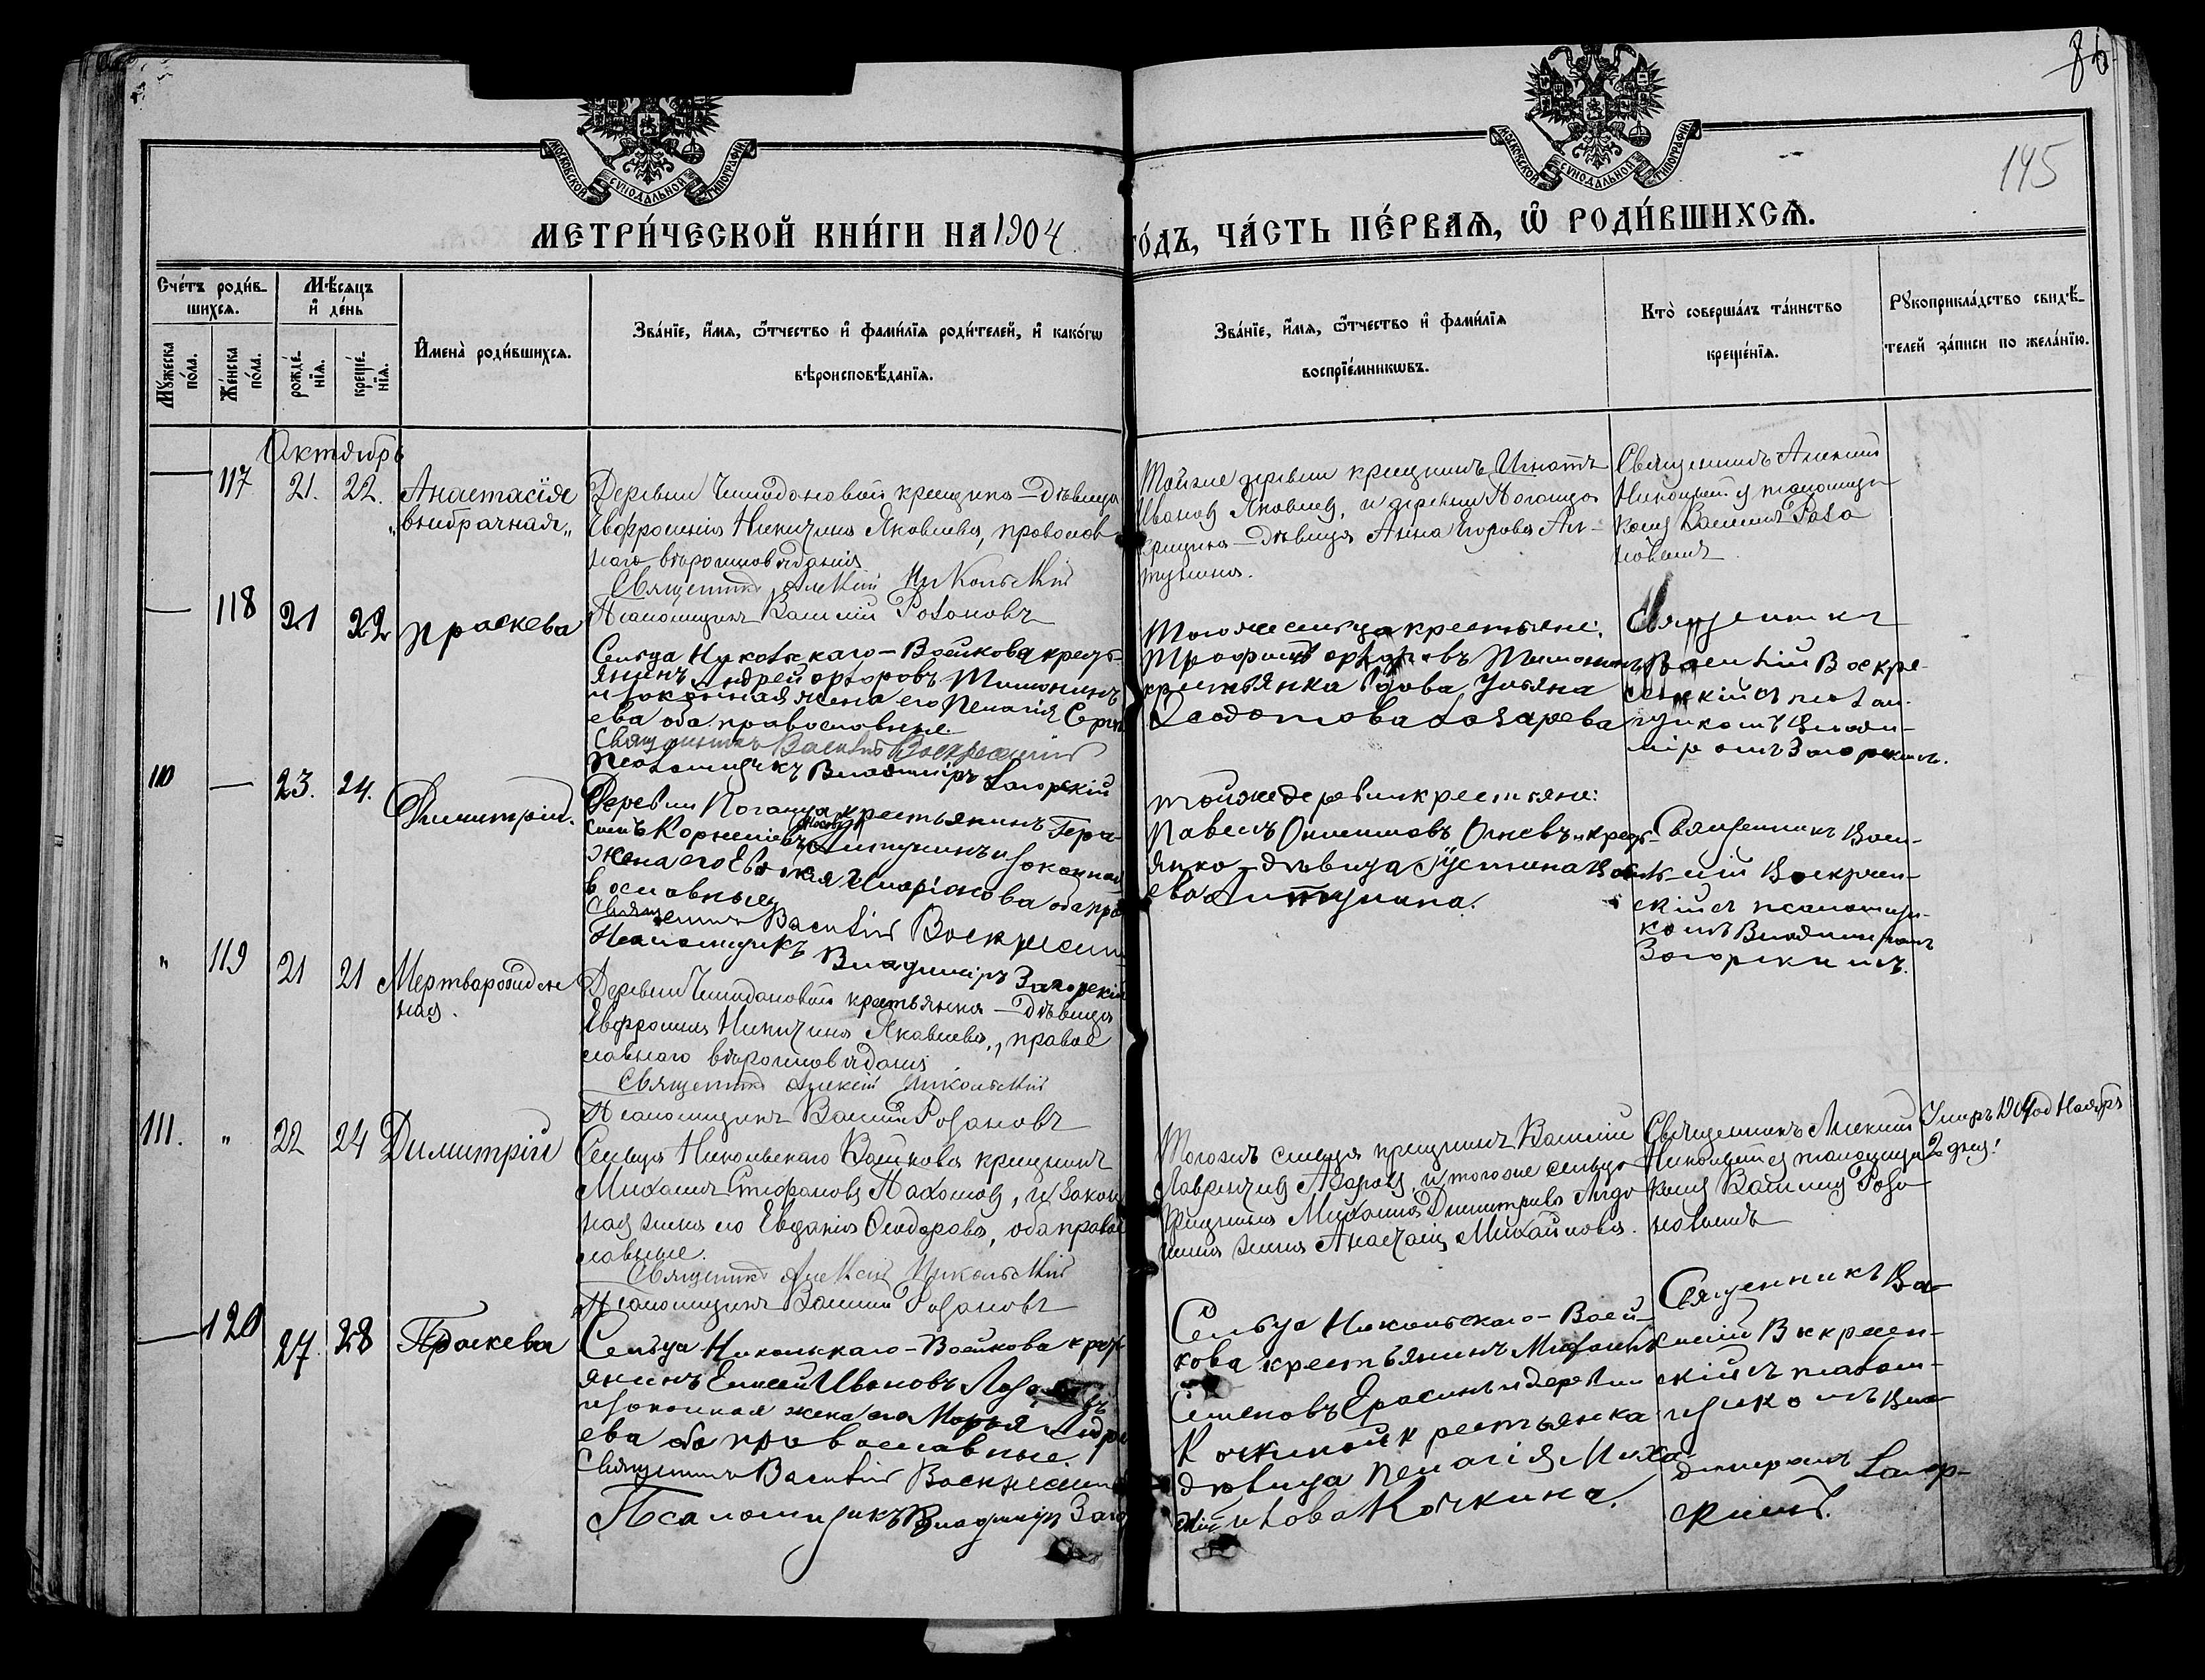 86
145
МОСКОВСКОЙ СѴНОДАЛЬНОЙ ТИПОГРАФІИ
МОСКОВСКОЙ СѴНОДАЛЬНОЙ ТИПОГРАФІИ
МЕТРИ́ЧЕСКОЙ КНИ́ГИ НА 1904
ГО́ДЪ, ЧА́СТЬ ПЕ́РВАѦ, Ѿ РОДИ́ВШИХСѦ.
Сче́тъ роди́в-
шихсѧ.
Мѣ́сяцъ
и҆ де́нь
Мꙋ́жеска
по́ла.
Же́нска
по́ла.
рожде́-
нїѧ.
креще́-
нїѧ.
И҆мена̀ роди́вшихсѧ.
Зва́нїе, и҆́мѧ, ѻ҆́тчество и҆ фами́лїѧ роди́телей, и҆ како́гѡ
вѣроисповѣ́данїѧ.
Зва́нїе, и҆́мѧ, ѻ҆́тчество и҆ фами́лїѧ
воспрїе́мникѡвъ.
Кто̀ соверша́лъ та́инство
креще́нїѧ.
Рꙋкоприкла́дство свидѣ́-
телей за́писи по жела́нїю.
Октябрь
— 117 21. 22. Анастасія
„внебрачная„
Деревни крестьянка — дѣвица
Евфросинія Никитина Яковлева, православ
наго вѣроисповѣданія
Священникъ Алексій Никольскій
Псаломщикъ Василій Розановъ
Тойже деревни крестьянинъ Игнатъ
Ивановъ Яковлевъ, и деревни Поганца
крестьянка — дѣвица Анна Егорова Ли-
тукина.
Священникъ Алексій
Никольскій съ псаломщи-
комъ Василіемъ Роза
новымъ
— 118 21 22 Праскева
Сельца Никольскаго — Воейкова крест-
янинъ Андрей Тимонинъ
и законная жена его Пелагія Серг
ева оба православные.
Священникъ Василій Воскресенскій
Псаломщикъ Владимиръ Загорскій
Тогоже сельца крестьяне:
Трофимъ Тимонинъ
крестьянка вдова Ульяна
Ѳеодотова Лазарева
Священникъ
Василій Воскре-
сенскій съ псалом-
щикомъ Влади-
міромъ Загорскимъ.
110 — 23. 24. Димитрій.
Деревни Поганца крестьянинъ Гера-
симъ Корнеліевъ Липукинъ и законная
жена его Евдокія Иларіонова оба пра
вославные
Священникъ Василій Воскресен
Псаломщикъ Владимиръ Загорскій
Тойже деревни крестьяне:
Павелъ Онисимовъ Огневъ и крест-
янка — дѣвица Іустина Васильева
Липукина.
Священникъ Васи-
лій Воскресен-
скій съ псаломщи-
комъ Владимиромъ
Загорскимъ.
„ 119 21 21 Мертворожден
ная.
Деревни крестьянка — дѣвица
Евфросинія Никитина Яковлева, право
славнаго вѣроисповѣданія
Священникъ Алексій Никольскій
Псаломщикъ Василій Розановъ
111. „ 22 24 Димитрій
Сельца Никольскаго Воейкова крестьянинъ
Михаилъ Стефановъ Пахомовъ, и закон
ная жена его Евдокія Ѳеодорова, оба право
славные.
Священникъ Алексій Никольскій
Псаломщикъ Василій Розановъ
Тогожъ сельца крестьянинъ Василій
Лаврентіевъ Азаровъ, и тогоже сельца
крестьянина Михаила Димитріева
жена Анастасія Михайлова.
Священникъ Алексій
Никольскій съ псаломщи
комъ Василіемъ Роза
новымъ
Умеръ 1904 год Ноябрь
2 дня!
— 120 27 28 Праскева
Сельца Никольскаго — Воейкова крест
янинъ Елисей Ивановъ
и законная жена его Марья Андре
ева оба православные.
Священникъ Василій Воскресенс
Псаломщикъ Владимиръ Заго
Сельца Никольскаго — Воей-
кова крестьянинъ
Семеновъ Ерасинъ и деревни
Кочкиной крестьянка
дѣвица Пелагія Миха
Кочкина.
Священникъ Ва-
силій Воскресен-
скій съ псалом-
щикомъ Вла-
димиромъ Загор-
скимъ.